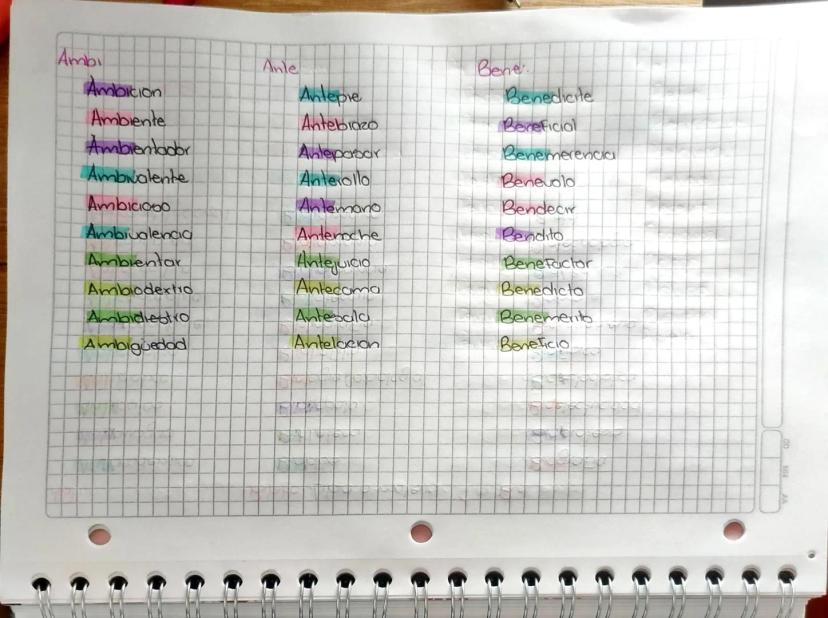 Ambi
Ambicion
Ambiente
Ambientador
Ambivalente
Ambicioso
Ambivalencia
Ambientar
Ambiodextro
Ambidiestro
Ambigüedad
Ante
Antepie
Antebrazo
Antepasar
Anterollo
Antemano
Antenoche
Antejuicio
Antecama
Antesala
Antelacion
Bene:
Benedicite
Beneficial
Benemerencia
Benevolo
Bendecir
Bendito
Benefactor
Benedicto
Benemerito
Beneficio